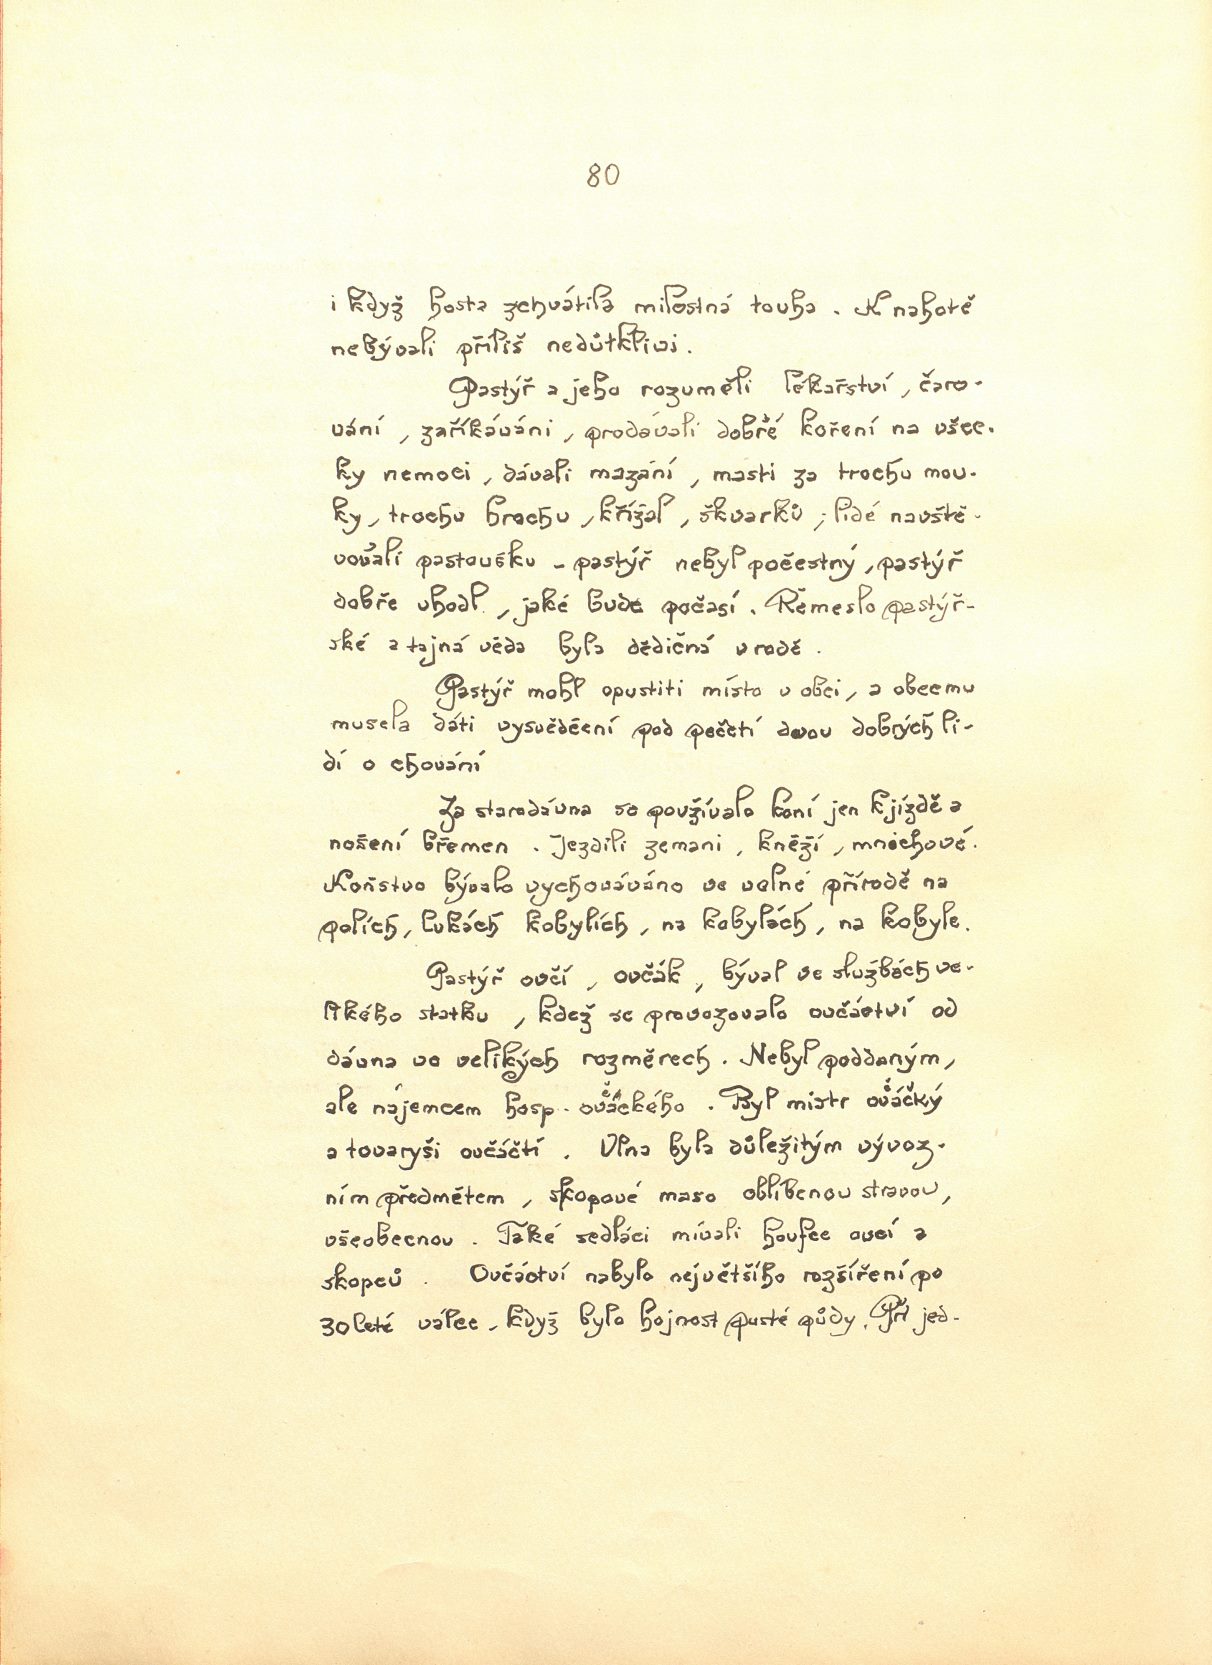 80
i když hosta zchvátila milostná touha. K nahotě
nebývali příliš nedůtkliví.
Pastýř a jeho rozuměli lékařství, čaro-
vání, zaříkávání, prodávali dobré koření na všec-
ky nemoci, dávali mazání, masti za trochu mou-
ky, trochu hrachu, křížal, škvarků; lidé navště-
vovali pastoušku - pastýř nebyl počestný, pastýř
dobře uhodl, jaké bude počasí. Řemeslo pastýř-
ské a tajná věda byla dědičná v rodě.
Pastýř mohl opustiti místo v obci, a obec mu
musela dáti vysvědčení pod pečetí dvou dobrých li-
dí o chování
Za starodávna se používalo koní jen k jízdě a
nošení břemen. Jezdili zemani, kněží, mnichové.
Koňstvo bývalo vychováváno ve volné přírodě na
polích, lukách kobylích, na kobylách, na kobyle.
Pastýř ovčí, ovčák, býval ve službách ve-
likého statku, kdež se provozovalo ovčáctví od
dávna ve velikých rozměrech. Nebyl poddaným,
ale nájemcem hosp. ovčáckého. Byl mistr ovčácký
a tovaryši ovčáčtí. Vlna byla důležitým vývoz-
ním předmětem, skopové maso oblíbenou stravou,
všeobecnou. Také sedláci mívali houfce ovcí a
skopců. Ovčáctví nabylo největšího rozšíření po
30leté válce, když bylo hojnost pusté půdy. Při jed-